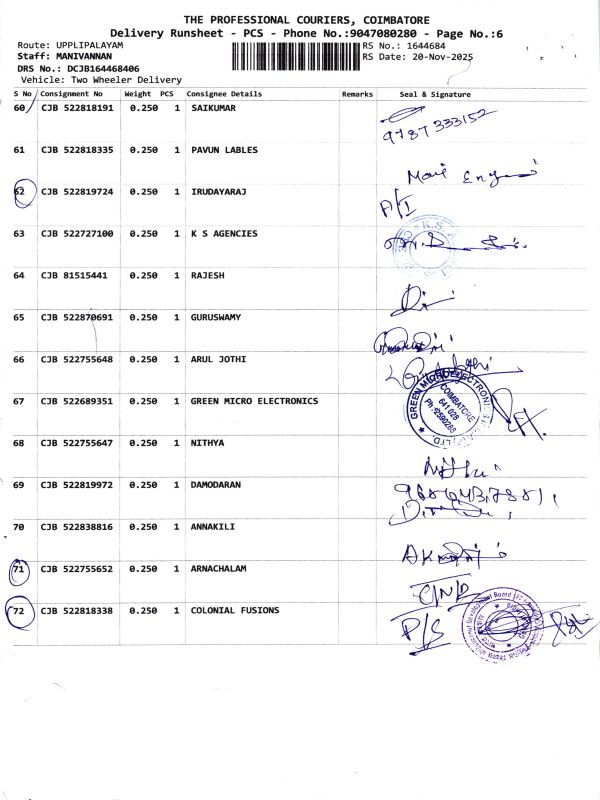 THE PROFESSIONAL COURIERS, COIMBATORE
Delivery Runsheet - PCS - Phone No.:9047080280 - Page No.:6
Route: UPPLIPALAYAM RS No.: 1644684
Staff: MANIVANNAN RS Date: 20-Nov-2025
DRS No.: DCJB164468406
Vehicle: Two Wheeler Delivery
S No Consignment No Weight PCS Consignee Details Remarks Seal & Signature
60 CJB 522818191 0.250 1 SAIKUMAR
9787333152
61 CJB 522818335 0.250 1 PAVUN LABLES
62 CJB 522819724 0.250 1 IRUDAYARAJ
A/I
63 CJB 522727100 0.250 1 K S AGENCIES
64 CJB 81515441 0.250 1 RAJESH
65 CJB 522870691 0.250 1 GURUSWAMY
66 CJB 522755648 0.250 1 ARUL JOTHI
67 CJB 522689351 0.250 1 GREEN MICRO ELECTRONICS
GREEN MICROELECTRONICS
COIMBATORE
641 028
68 CJB 522755647 0.250 1 NITHYA
69 CJB 522819972 0.250 1 DAMODARAN
70 CJB 522838816 0.250 1 ANNAKILI
71 CJB 522755652 0.250 1 ARNACHALAM
72 CJB 522818338 0.250 1 COLONIAL FUSIONS
P/S